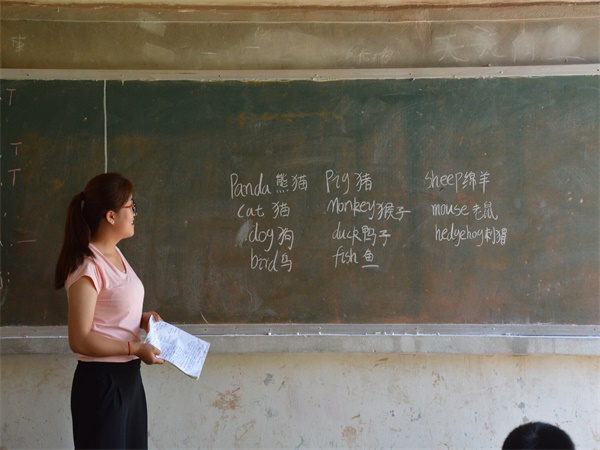 Panda熊猫
cat 猫
dog狗
bird鸟
Pig猪
Monkey猴子
duck鸭子
fish 鱼
sheep绵羊
mouse老鼠
hedgehog刺猬